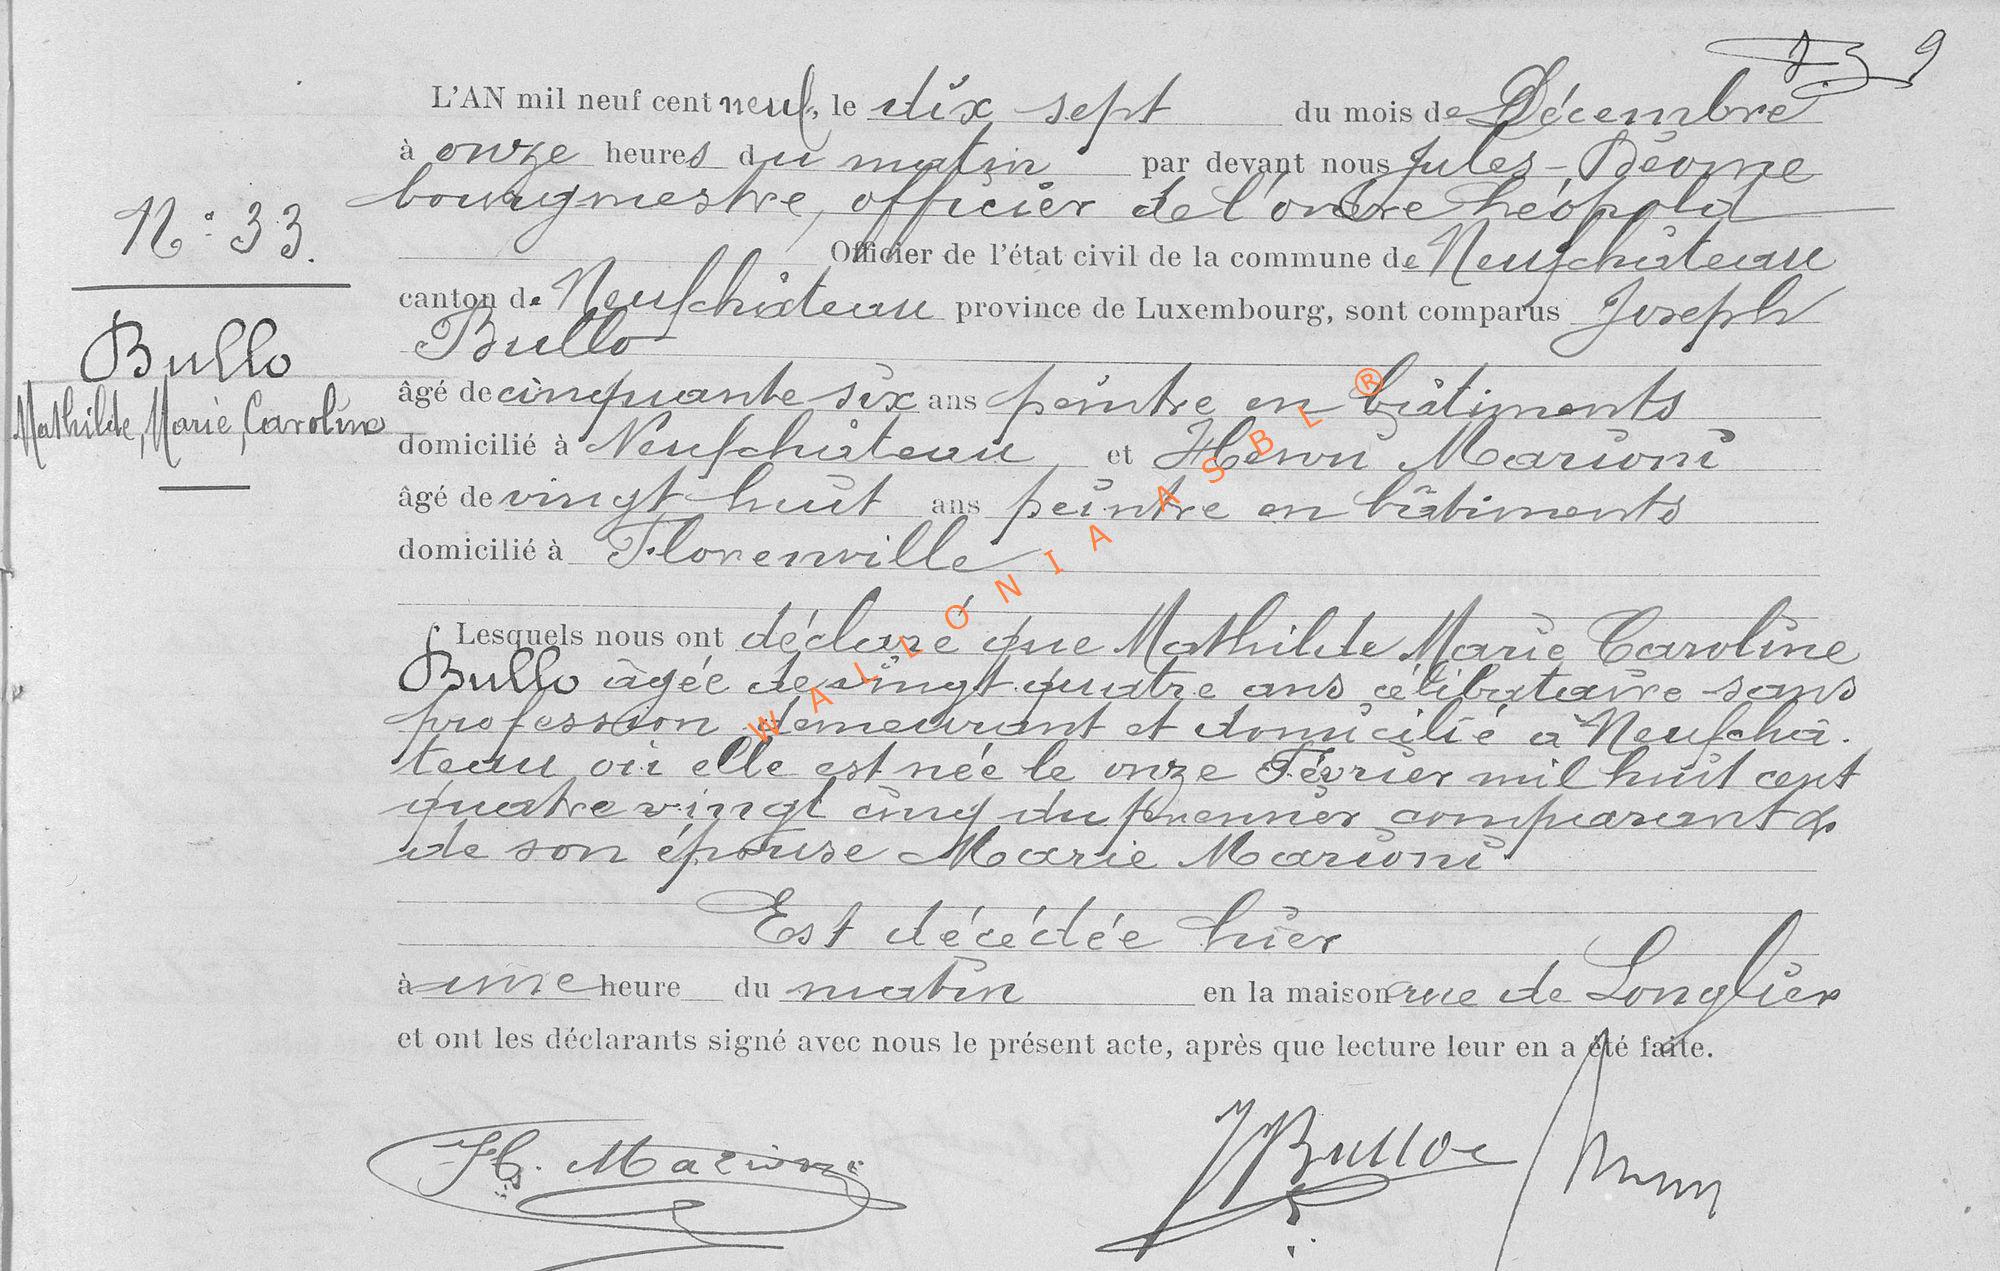 9
L'AN mil neuf cent neuf, le dix sept du mois de Décembre
à onze heures du matin par devant nous Jules
bourgmestre, officier de l'ordre Léopold
Officier de l'état civil de la commune de Neufchâteau
canton de Neufchâteau province de Luxembourg, sont comparus Joseph
Bullo
âgé de cinquante six ans peintre en bâtiments
domicilié à Neufchâteau et Henri Marioni
âgé de vingt huit ans peintre en bâtiments
domicilié à Florenville
Lesquels nous ont déclaré que Mathilde Marie Caroline
Bullo âgée de vingt quatre ans célibataire sans
profession demeurant et domicilié à Neufchâ-
teau où elle est née le onze Février mil huit cent
quatre vingt cinq du premier comparant &
de son épouse Marie Marioni
Est décédée hier
à une heure du matin en la maison rue de Longlier
et ont les déclarants signé avec nous le présent acte, après que lecture leur en a été faite.
N° 33.
Bullo
Mathilde, Marie, Caroline
H. Marioni
J Bullo
WALLONIA ASBL ®